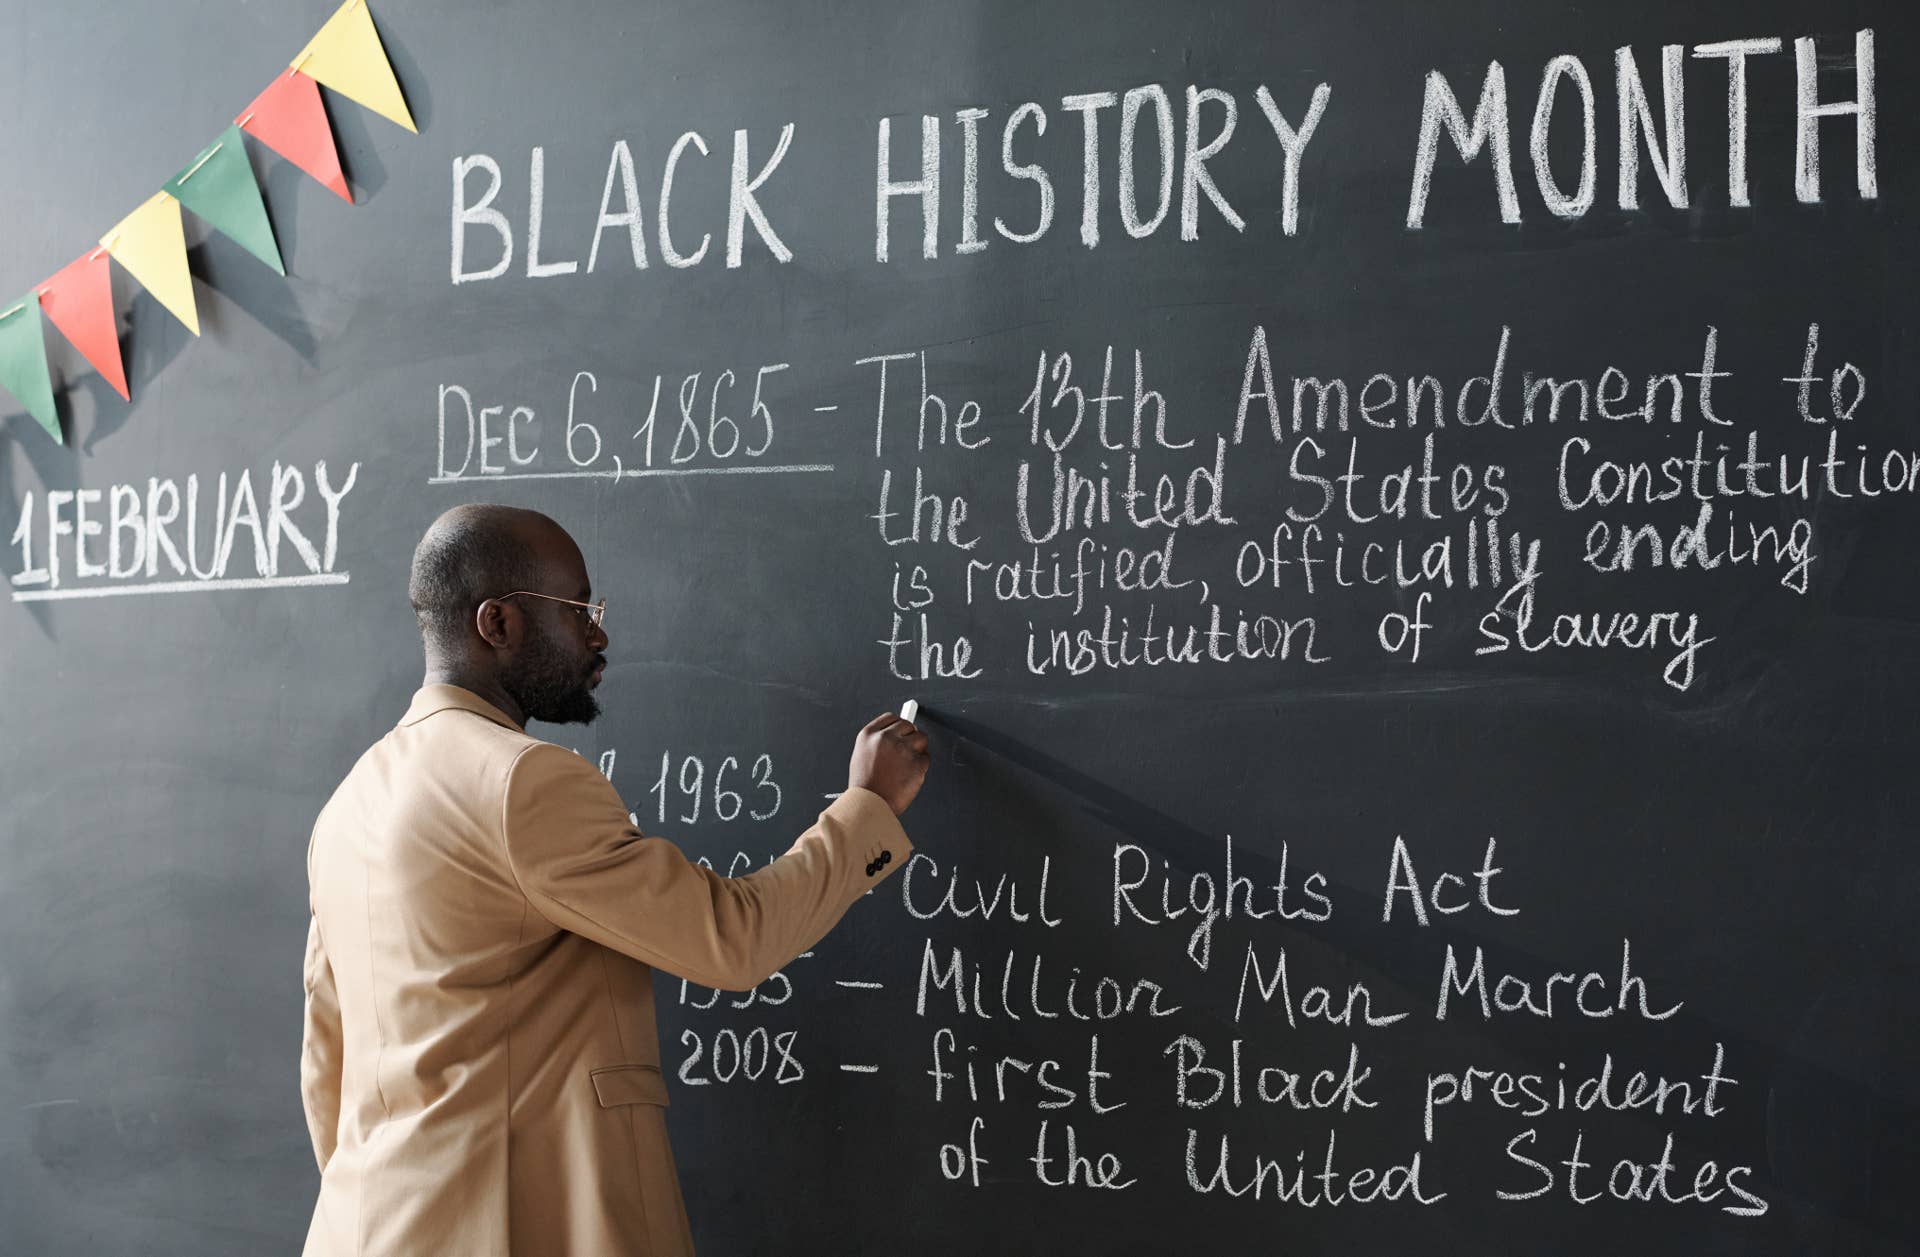 BLACK HISTORY MONTH
1 FEBRUARY
DEC 6, 1865 - The 13th Amendment to
the United States Constitution
is ratified, officially ending
the institution of slavery
, 1963 -
- Civil Rights Act
1995 - Million Man March
2008 - first Black president
of the United States